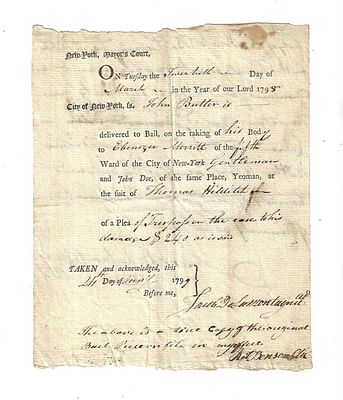 New-York, Mayor's Court,
ON Tuesday the Twentieth Day of
March in the Year of our Lord 179
City of New-York, ss. John Butler is
delivered to Bail, on the taking of his Body
to Ebenezer Merritt of the fifth
Ward of the City of New-York Gentleman
and John Doe, of the same Place, Yeoman, at
the suit of Thomas
of a Plea of Trespass on the case to his
damage $ 240
TAKEN and acknowledged, this
Day of 1799
Before me,
Jacob De Lamontagnie
The above is a true Copy of the original
Bail Piece on file in my office
Rob Benson Clk